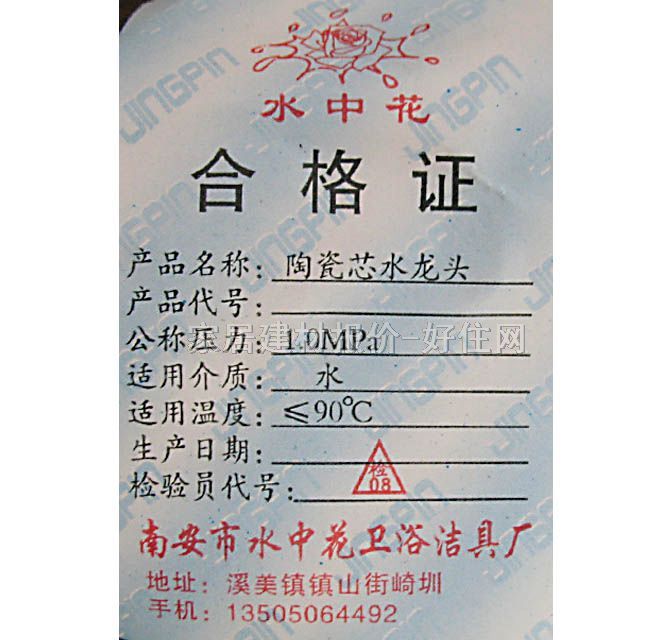 水中花
合格证
产品名称：陶瓷芯水龙头
产品代号：
公称压力：1.0MPa
家居建材报价-好住网
适用介质：水
适用温度：≤90℃
生产日期：
检验员代号：检08
南安市水中花卫浴洁具厂
地址：溪美镇镇山街崎圳
手机：13505064492
JINGPIN
JINGPIN
JINGPIN
JINGPIN
JINGPIN